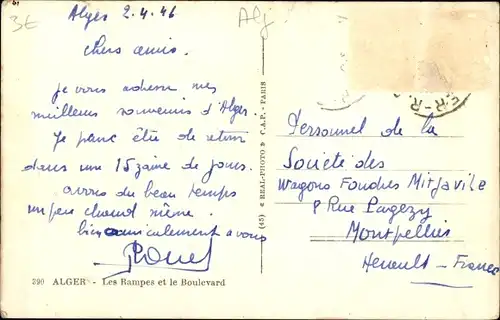 3€
Alger 2.4.46
Alg
chers amis.
je vous adresse mes
meilleurs souvenirs d'Alger.
Je panc être de retour
dans une 15zaine de jours.
avons du beau temps
un peu chaud même.
bien amicalement a vous
390 ALGER - Les Rampes et le Boulevard
(45) « REAL-PHOTO » C.A.P. - PARIS
Personnel de la
Societé des
Wagons Foudres Mitjavile
8 Rue Pagezy
Montpellier
Herault - France